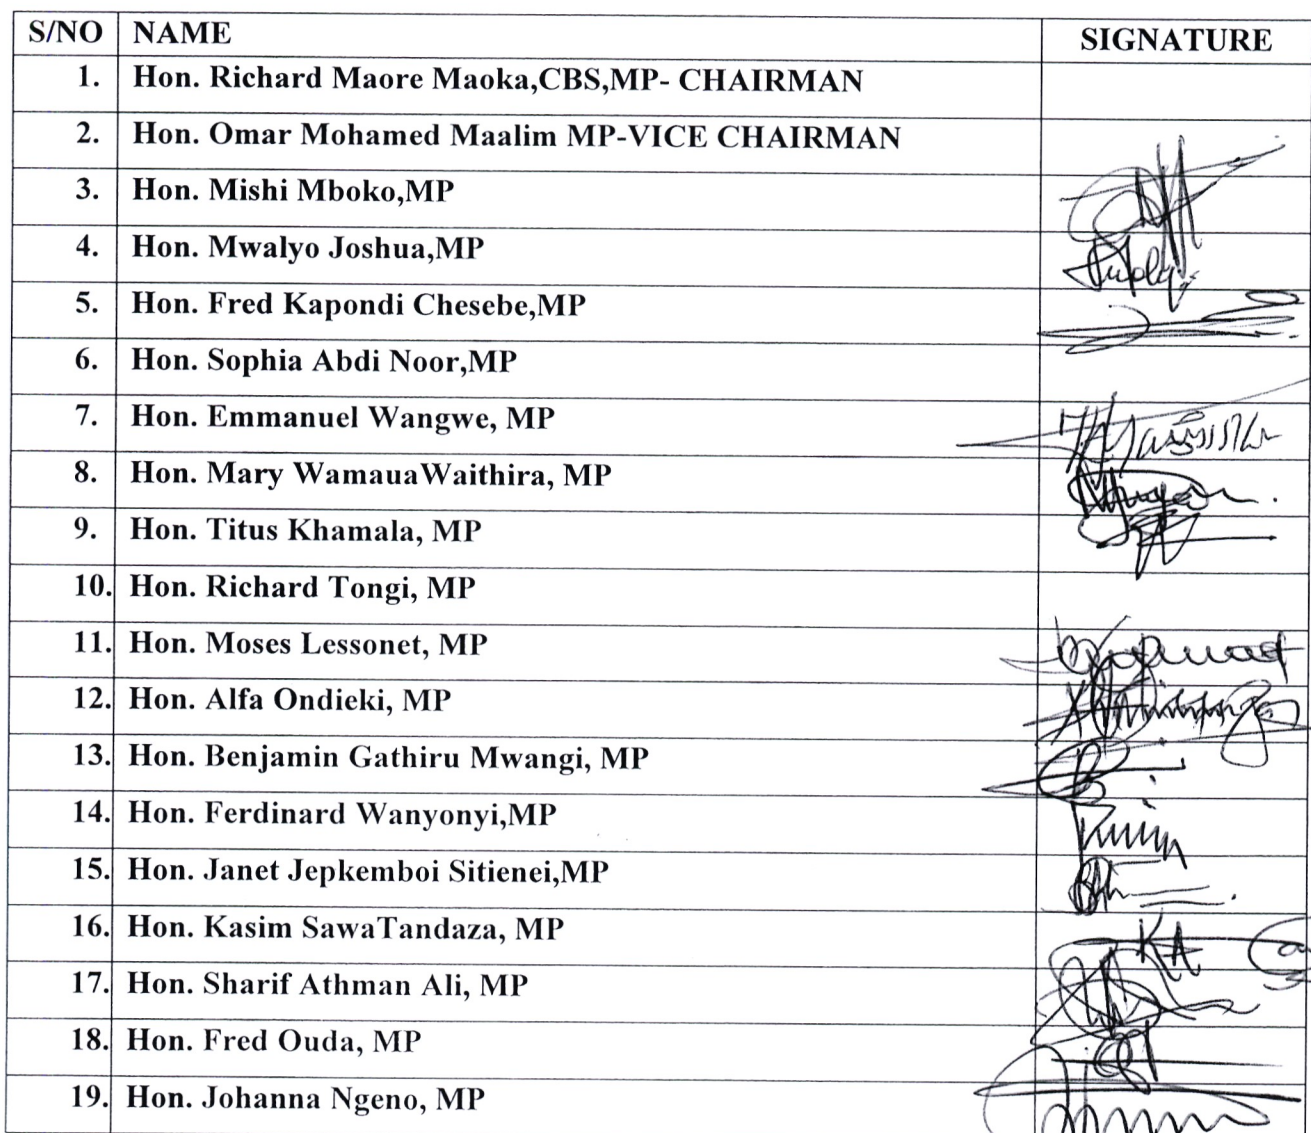 S/NO NAME SIGNATURE
1. Hon. Richard Maore Maoka,CBS,MP- CHAIRMAN
2. Hon. Omar Mohamed Maalim MP-VICE CHAIRMAN
3. Hon. Mishi Mboko,MP
4. Hon. Mwalyo Joshua,MP
5. Hon. Fred Kapondi Chesebe,MP
6. Hon. Sophia Abdi Noor,MP
7. Hon. Emmanuel Wangwe, MP
8. Hon. Mary WamauaWaithira, MP
9. Hon. Titus Khamala, MP
10. Hon. Richard Tongi, MP
11. Hon. Moses Lessonet, MP
12. Hon. Alfa Ondieki, MP
13. Hon. Benjamin Gathiru Mwangi, MP
14. Hon. Ferdinard Wanyonyi,MP
15. Hon. Janet Jepkemboi Sitienei,MP
16. Hon. Kasim SawaTandaza, MP
17. Hon. Sharif Athman Ali, MP
18. Hon. Fred Ouda, MP
19. Hon. Johanna Ngeno, MP